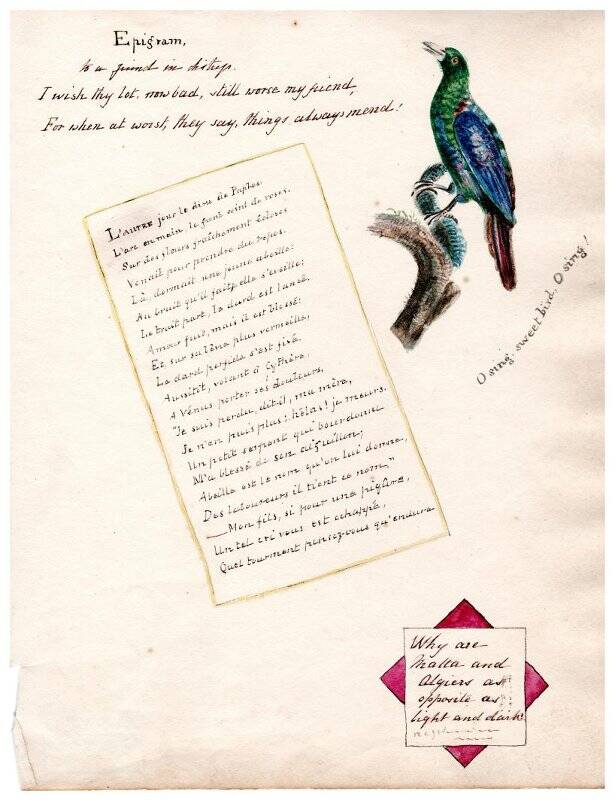 Epigram,
to a friend in distress.
I wish thy lot, now bad, still worse my friend,
For when at worst, they say, things always mend!
L'AUTRE jour le dieu de Paphos,
L'arc en main, le front ceint de roses,
Sur des fleurs fraîchement écloses
Venait pour prendre du repos.
Là, dormait une jeune abeille:
Au bruit qu'il fait, elle s'éveille;
Le trait part, le dard est lancé.
Amour fuit, mais il est blessé:
Et, sur sa lèvre plus vermeille,
Le dard perfide s'est fixé.
Aussitôt, volant à Cythère,
A Vénus porter ses douleurs,
"Je suis perdu, dit-il, ma mère,
Je n'en puis plus: hélas! je meurs.
Un petit serpent qui bourdonne
M'a blessé de son aiguillon;
Abeille est le nom qu'on lui donne,
Des laboureurs il tient ce nom."
—Mon fils, si pour une piqûre,
Un tel cri vous est échappé,
Quel tourment pensez-vous qu'endure
O sing, sweet bird, O sing!
Why are
Malta and
Algiers as
opposite as
light and dark?